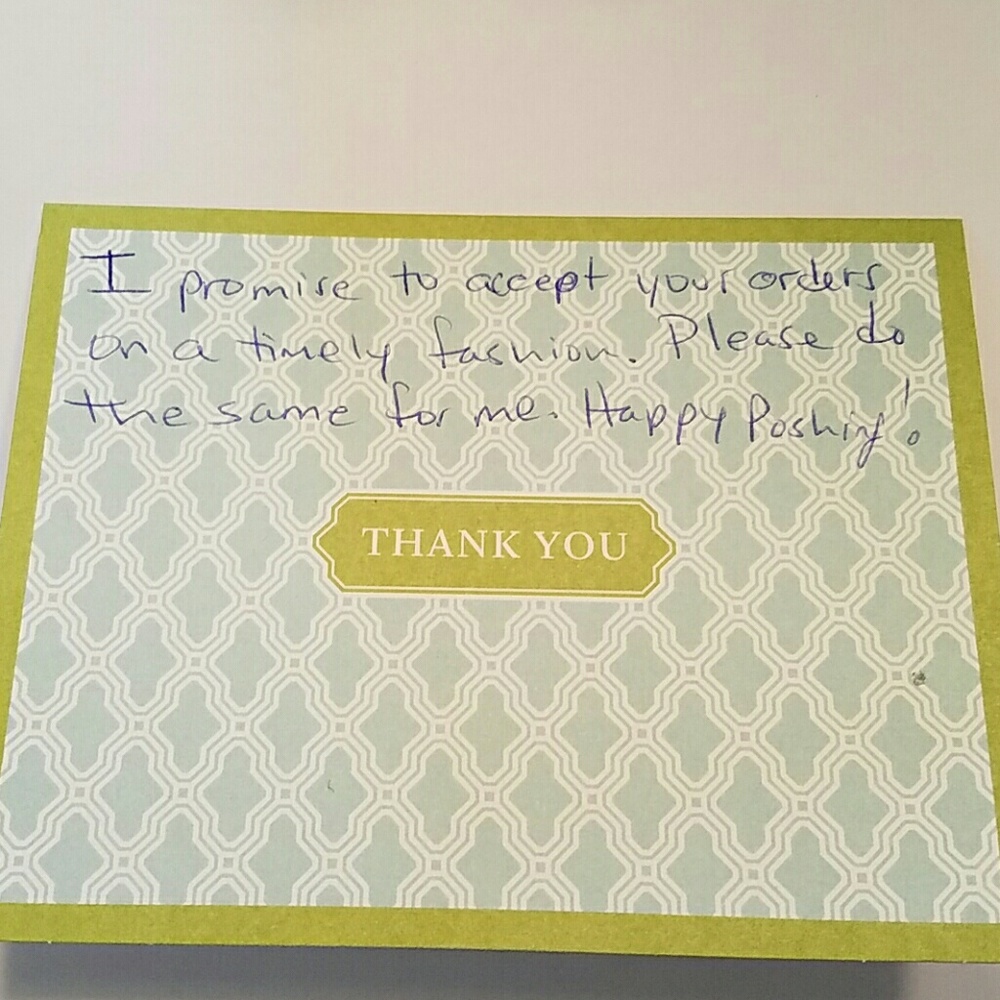 I promise to accept your orders
on a timely fashion. Please do
the same for me. Happy Poshing!
THANK YOU